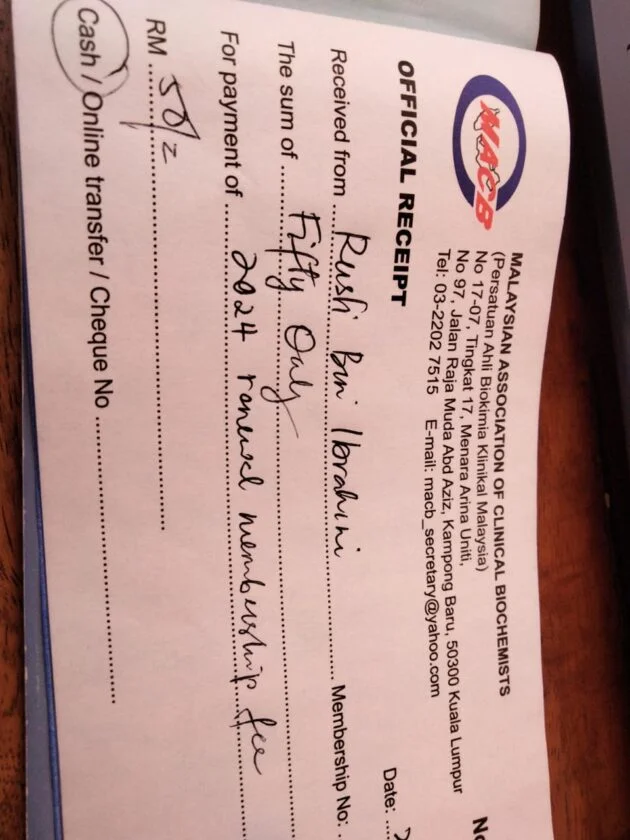 MACB
MALAYSIAN ASSOCIATION OF CLINICAL BIOCHEMISTS
(Persatuan Ahli Biokimia Klinikal Malaysia)
No 17-07, Tingkat 17, Menara Arina Uniti,
No 97, Jalan Raja Muda Abd Aziz, Kampong Baru, 50300 Kuala Lumpur
Tel: 03-2202 7515 E-mail: macb_secretary@yahoo.com
No
OFFICIAL RECEIPT
Date: 2
Received from Rusli Bin Ibrahim Membership No:
The sum of Fifty Only
For payment of 2024 renewal membership fee
RM 50/=
Cash / Online transfer / Cheque No